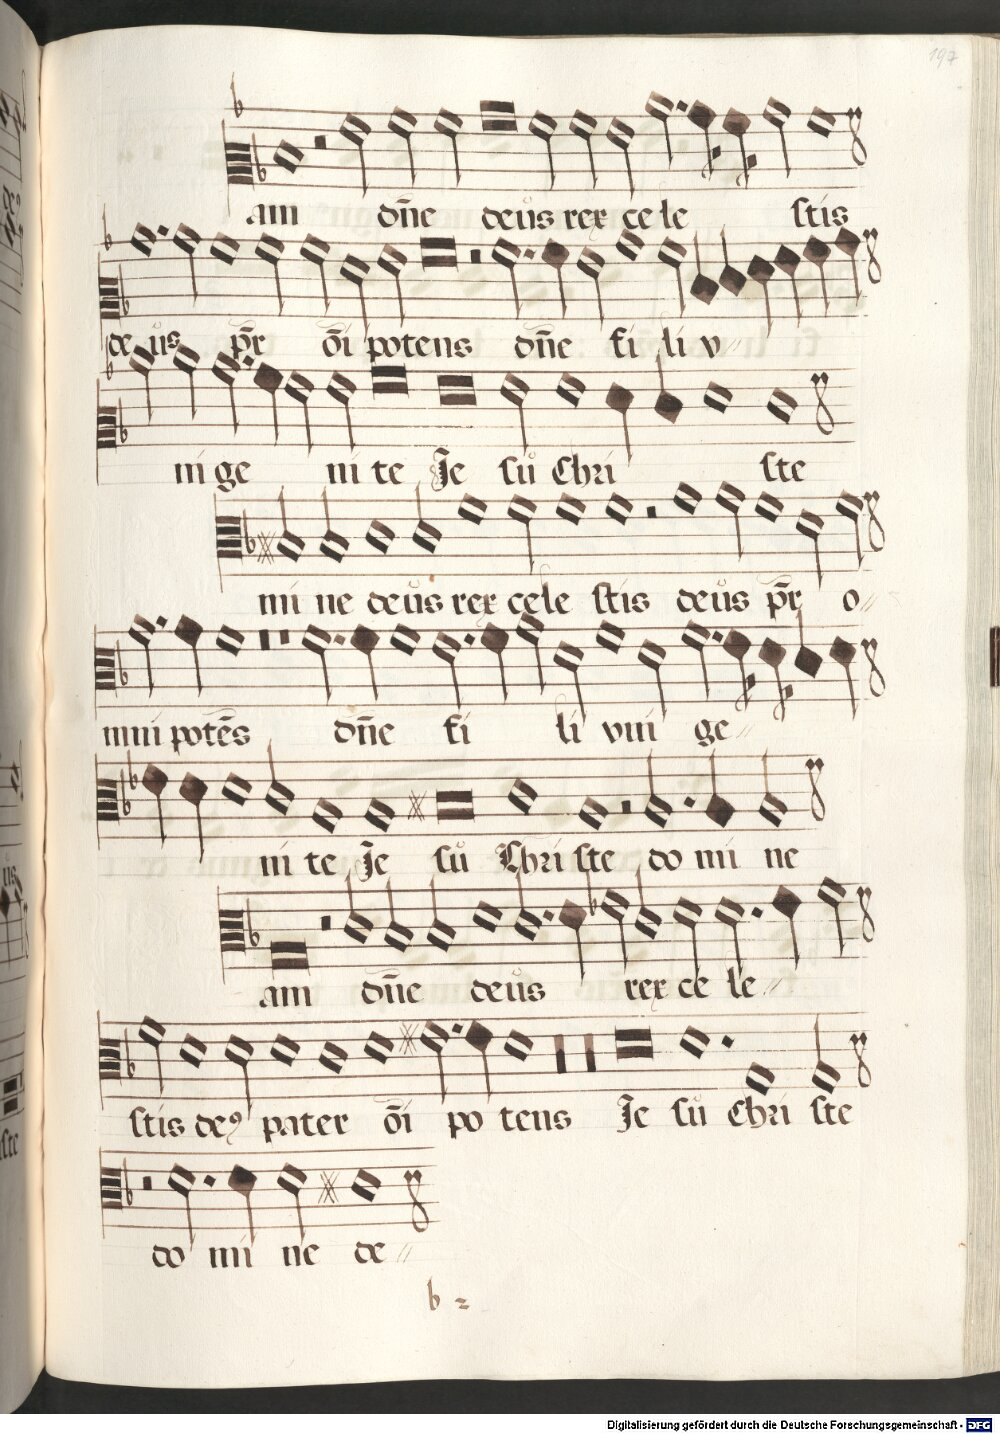 197
am dn̄e deus rex cele stis
de us pr̄ oī potens dn̄e fi li v
ni ge ni te Je sů Chri ste
mi ne deůs rex cele stis deůs pr̄ o
mni potēs dn̄e fi li vni ge
ni te Je sů Chri ste do mi ne
am dn̄e deůs rex ce le
stis deꝰ pater oī po tens Je sů Chri ste
do mi ne de
b 2
Digitalisierung gefördert durch die Deutsche Forschungsgemeinschaft - DFG